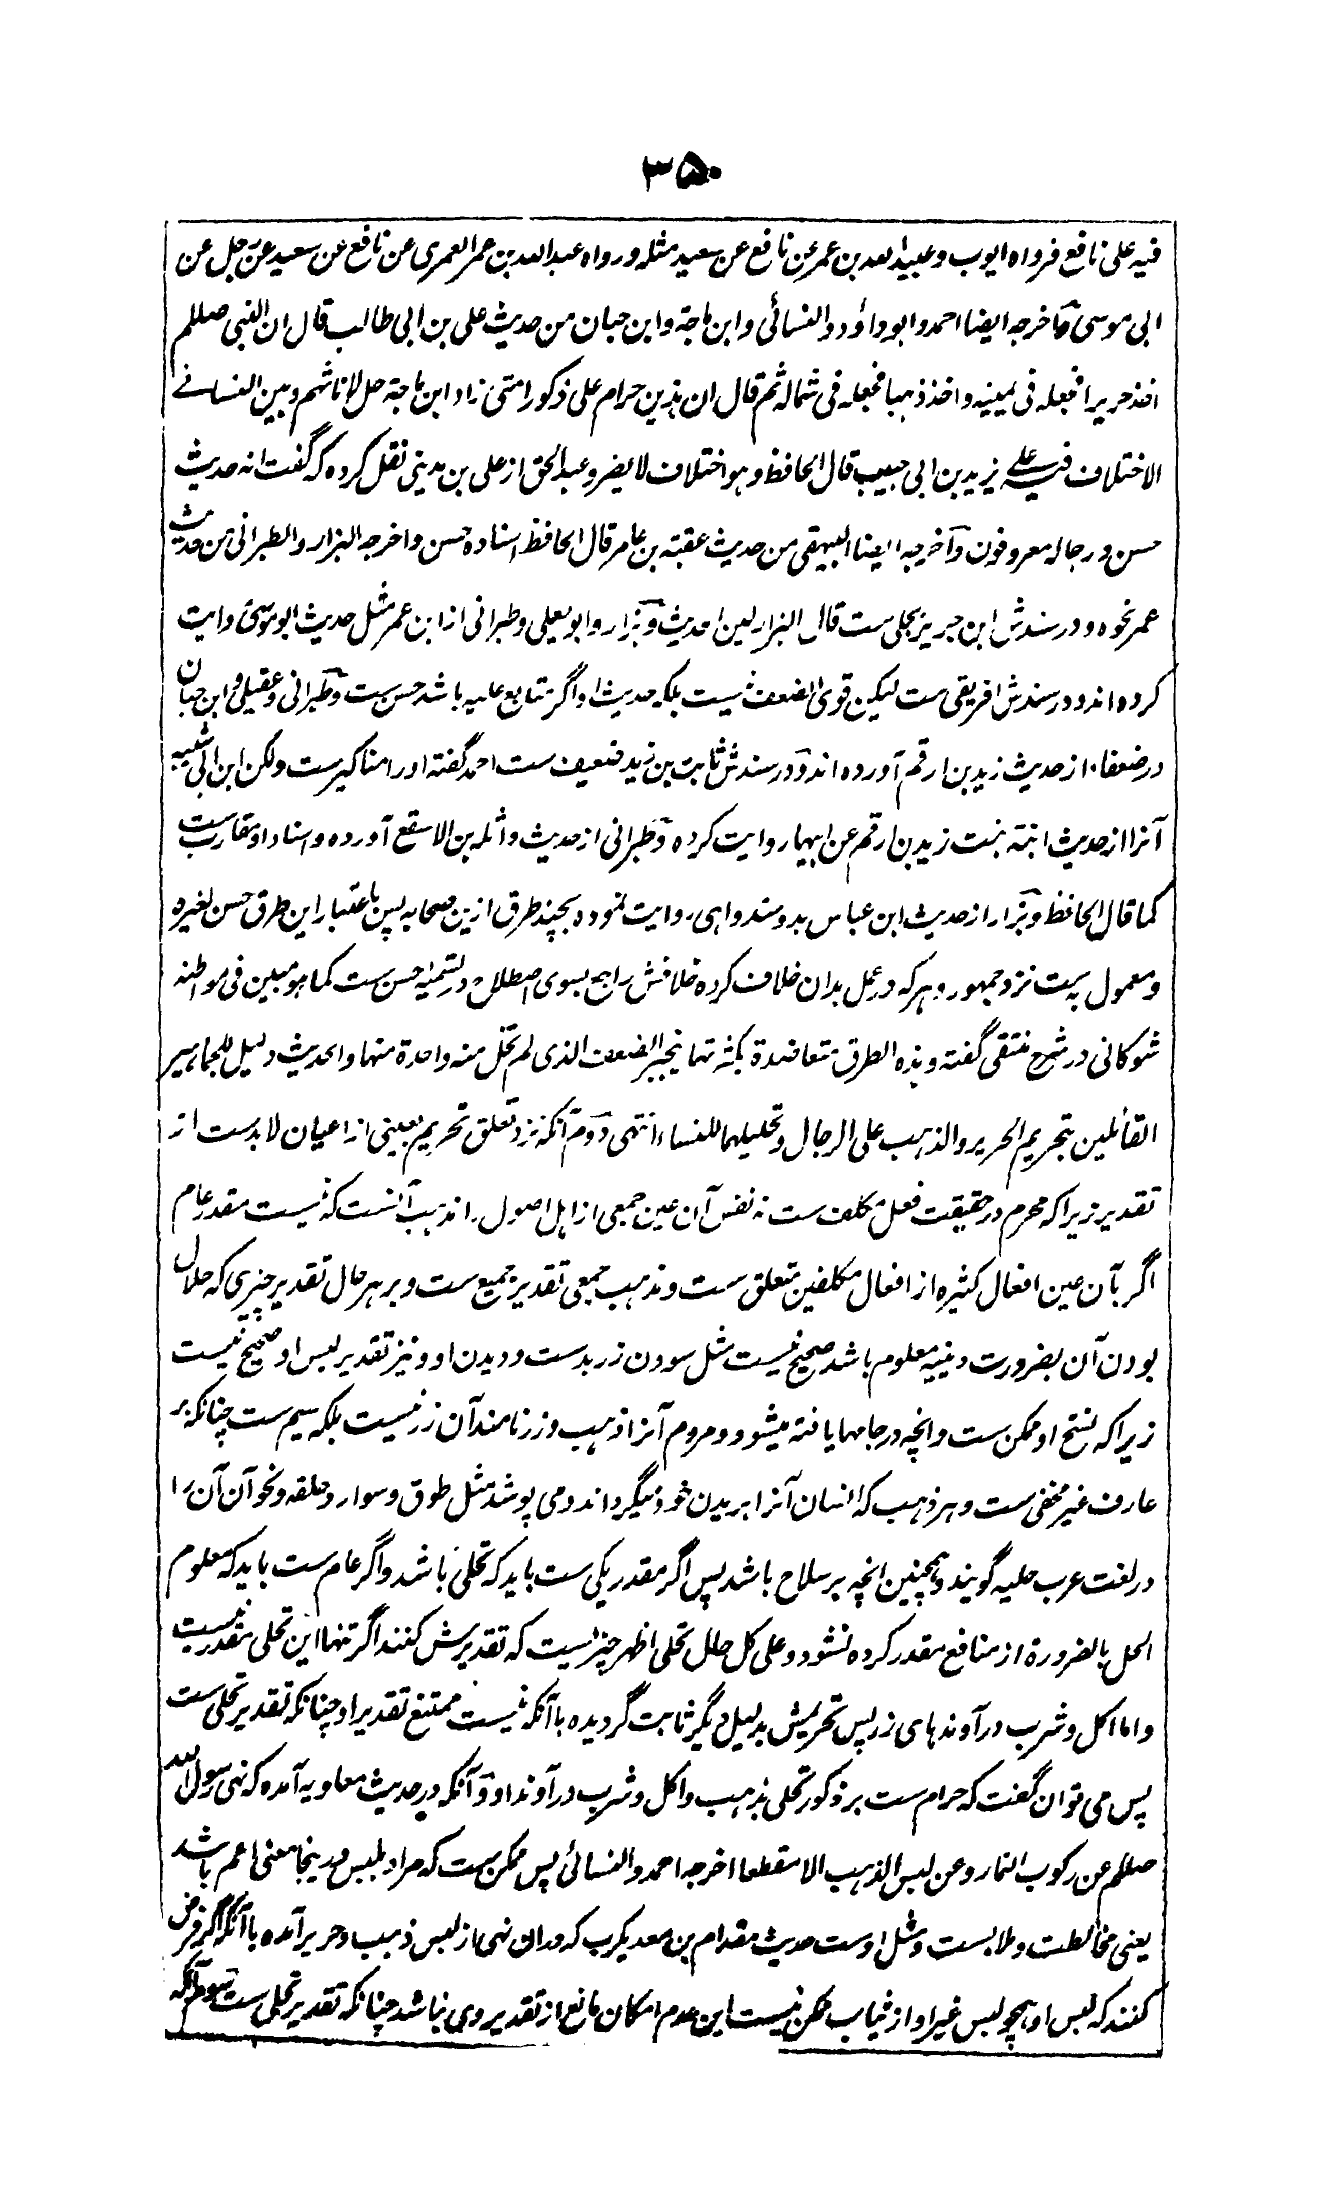 ۳۵۰
فیه علی نافع فرواه ایوب وعبید الله بن عمر عن نافع عن سعید مثله ورواه عبد الله بن عمر العمری عن نافع عن سعید عن رجل عن
ابی موسی واخرجه ایضا احمد وابو داؤد والنسائی وابن ماجة وابن حبان من حدیث علی بن ابی طالب قال ان النبی صللم
اخذ حریرا فجعله فی یمینه واخذ ذهبا فجعله فی شماله ثم قال ان هذین حرام علی ذکور امتی زاد ابن ماجة حل لاناثهم وبین النسائے
الاختلاف فیه علی یزید بن ابی حبیب قال الحافظ وهو اختلاف لا یضر وعبد الحق از علی بن مدینی نقل کرده که گفت انه حدیث
حسن ورجاله معروفون وآخرجه ایضا البیهقی من حدیث عقبة بن عامر قال الحافظ اسناده حسن واخرجه البزار والطبرانی من حدیث
عمر نحوه ودر سندش ابن جریر بجلی ست قال البزار لین الحدیث وبزار وابو یعلی وطبرانی از ابن عمر مثل حدیث ابو موسی روایت
کرده اند ودر سندش افریقی ست لیکن قوی الضعف نیست بلکه حدیث او اگر متابع علیه باشد حسن ست وطبرانی وعقیلی وابن حبان
در ضعفاء از حدیث زید بن ارقم آورده اند ودر سندش ثابت بن زید ضعیف ست احمد گفته او را مناکیر ست ولکن ابن ابی شیبه
آنرا از حدیث ابنته بنت زید بن ارقم عن ابیها روایت کرده وطبرانی از حدیث واثله بن الاسقع آورده واسناد او مقارب ست
کما قال الحافظ وبزار از حدیث ابن عباس بدو سند واهی روایت نموده بچند طرق ازین صحابه پس باعتبار این طرق حسن لغیره
ومعمول به ست نزد جمهور وهر که در عمل بدان خلاف کرده خلافش راجع بسوی اصطلاح در تسمیه حسن ست کما هو مبین فی مواطنه
شوکانی در شرح منتقی گفته وهذه الطرق متعاضدة بکثرتها ینجبر الضعف الذی لم تخل منه واحدة منها والحدیث دلیل للجماهیر
القائلین بتحریم الحریر والذهب علی الرجال وتحلیلهما للنساء انتهی دوم آنکه نزد تعلق تحریم بعینی از اعیان لابد ست از
تقدیر زیرا که محرم در حقیقت فعل مکلف ست نه نفس آن عین جمعی از اهل اصول را مذهب آنست که نیست مقدر عام
اگر بآن عین افعال کثیره از افعال مکلفین متعلق ست ومذهب جمعی تقدیر جمیع ست وبر هر حال تقدیر چیزی که حلال
بودن آن بضرورت دینیه معلوم باشد صحیح نیست مثل سودن زر بدست ودیدن او ونیز تقدیر لبس او صحیح نیست
زیرا که نسج او ممکن ست وانچه در جامها یافته میشود ومردم آنرا ذهب وزر نامند آن زر نیست بلکه سیم ست چنانکه بر
عارف غیر مخفی ست وهر ذهب که انسان آنرا بر بدن خود میگرداند ومی پوشد مثل طوق وسوار وحلقه ونحو آن آن را
در لغت عرب حلیه گویند وهمچنین انچه بر سلاح باشد پس اگر مقدر یکی ست باید که تحلی باشد واگر عام ست باید که معلوم
الحل بالضرورة از منافع مقدر کرده نشود وعلی کل حال تحلی اظهر چیزیست که تقدیرش کنند اگر تنها این تحلی مقدر نیست
واما اکل وشرب در آوندهای زر پس تحریمش بدلیل دیگر ثابت گردیده با آنکه نیست ممتنع تقدیر او چنانکه تقدیر تحلی ست
پس می توان گفت که حرام ست بر ذکور تحلی بذهب واکل وشرب در آوند او وآنکه در حدیث معاویه آمده که نهی رسول الله
صللم عن رکوب النمار وعن لبس الذهب الا مقطعا اخرجه احمد والنسائی پس ممکن ست که مراد بلبس درینجا معنی اعم باشد
یعنی مخالطت وملابست ومثل اوست حدیث مقدام بن معدیکرب که دران نهی از لبس ذهب وحریر آمده با آنکه اگر فرض
کنند که لبس او همچو لبس غیر او از ثیاب ممکن نیست این عدم امکان مانع از تقدیر وی نباشد چنانکه تقدیر تحلی ست سوم آنکه